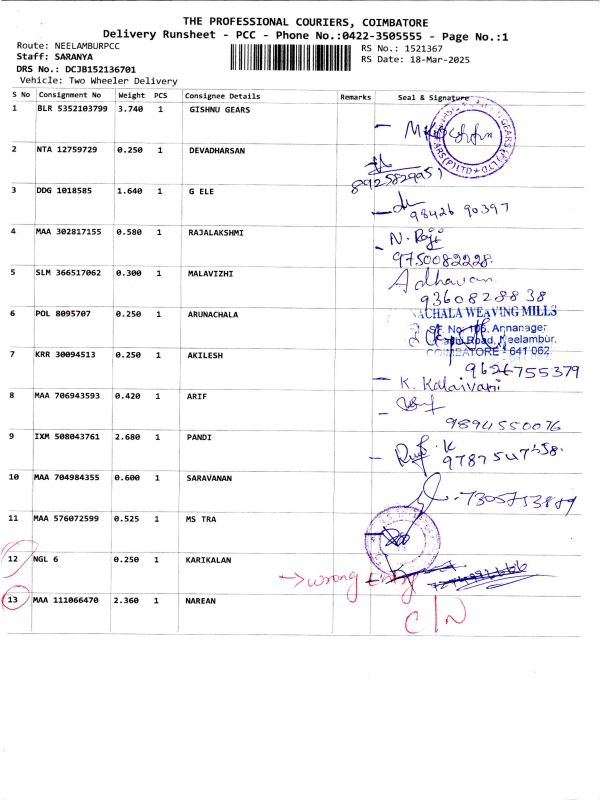 THE PROFESSIONAL COURIERS, COIMBATORE
Delivery Runsheet - PCC - Phone No.:0422-3505555 - Page No.:1
Route: NEELAMBURPCC
RS No.: 1521367
Staff: SARANYA
RS Date: 18-Mar-2025
DRS No.: DCJB152136701
Vehicle: Two Wheeler Delivery
S No Consignment No Weight PCS Consignee Details Remarks Seal & Signature
1 BLR 5352103799 3.740 1 GISHNU GEARS
2 NTA 12759729 0.250 1 DEVADHARSAN
3 DDG 1018585 1.640 1 G ELE
98426 90397
4 MAA 302817155 0.580 1 RAJALAKSHMI
N. Raji
9750082228
5 SLM 366517062 0.300 1 MALAVIZHI
Adhavan
9360828838
6 POL 8095707 0.250 1 ARUNACHALA
ACHALA WEAVING MILLS
SF. No: 105, Annanager,
Road, Neelambur,
COIMBATORE - 641 062
7 KRR 30094513 0.250 1 AKILESH
9626755379
K. Kalaivani
8 MAA 706943593 0.420 1 ARIF
9894550076
9 IXM 508043761 2.680 1 PANDI
10 MAA 704984355 0.600 1 SARAVANAN
11 MAA 576072599 0.525 1 MS TRA
12 NGL 6 0.250 1 KARIKALAN
wrong entry
13 MAA 111066470 2.360 1 NAREAN
C/N